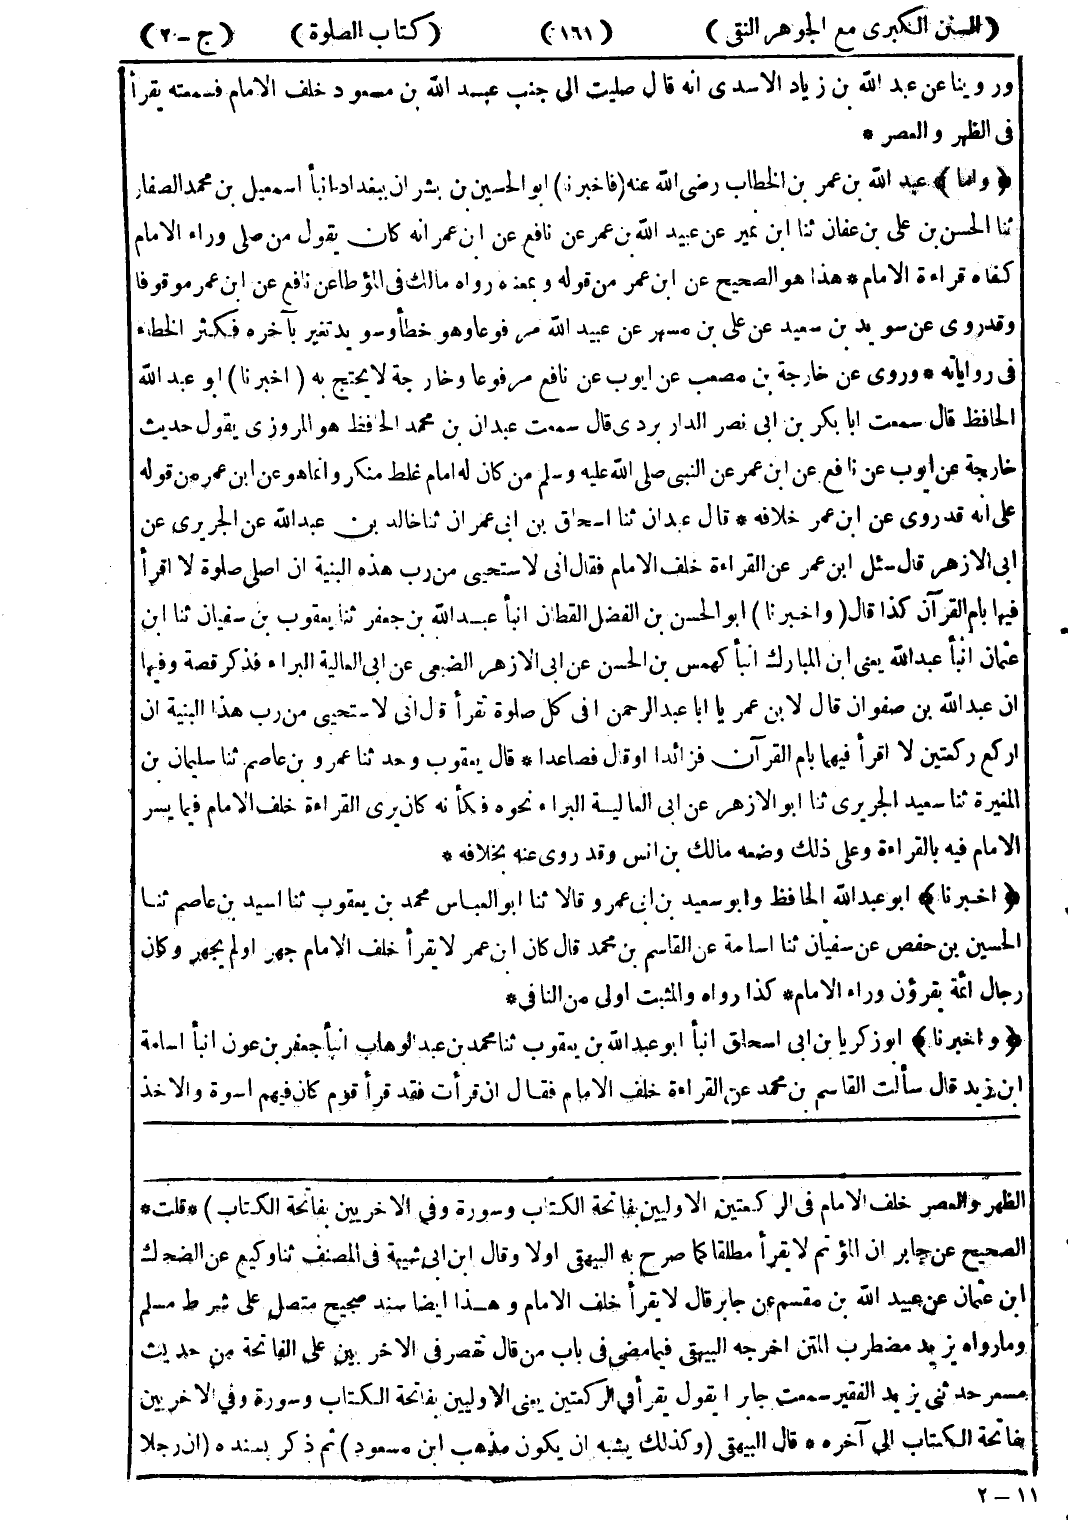 (السنن الكبرى مع الجوهر النقى) (١٦١) (كتاب الصلوة) (ج - ٢)
وروينا عن عبد الله بن زياد الاسدى انه قال صليت الى جنب عبد الله بن مسعود خلف الامام فسمعته يقرأ
فى الظهر والعصر *
﴿ واما ﴾ عبد الله بن عمر بن الخطاب رضى الله عنه (فاخبرنا) ابو الحسين بن بشران ببغداد انبأ اسمعيل بن محمد الصفار
ثنا الحسن بن على بن عفان ثنا ابن نمير عن عبيد الله بن عمر عن نافع عن ابن عمر انه كان يقول من صلى وراء الامام
كفاه قراءة الامام * هذا هو الصحيح عن ابن عمر من قوله وبمعناه رواه مالك فى المؤطا عن نافع عن ابن عمر موقوفا
وقد روى عن سويد بن سعيد عن على بن مسهر عن عبيد الله مرفوعا وهو خطأ وسويد تغير بآخره فكثر الخطاء
فى رواياته * وروى عن خارجة بن مصعب عن ايوب عن نافع مرفوعا وخارجة لا يحتج به (اخبرنا) ابو عبد الله
الحافظ قال سمعت ابا بكر بن ابى نصر الداربردى قال سمعت عبدان بن محمد الحافظ هو المروزى يقول حديث
خارجة عن ايوب عن نافع عن ابن عمر عن النبى صلى الله عليه وسلم من كان له امام غلط منكر وانما هو عن ابن عمر من قوله
على انه قد روى عن ابن عمر خلافه * قال عبدان ثنا اسحاق بن ابى عمران ثنا خالد بن عبد الله عن الجريرى عن
ابى الازهر قال سئل ابن عمر عن القراءة خلف الامام فقال انى لاستحيى من رب هذه البنية ان اصلى صلوة لا اقرأ
فيها بام القرآن كذا قال (واخبرنا) ابو الحسن بن الفضل القطان انبأ عبد الله بن جعفر ثنا يعقوب بن سفيان ثنا ابن
عثمان انبأ عبد الله يعنى ابن المبارك انبأ كهمس بن الحسن عن ابى الازهر الضبعى عن ابى العالية البراء فذكر قصة وفيها
ان عبد الله بن صفوان قال لابن عمر يا ابا عبد الرحمن افى كل صلوة تقرأ قال انى لاستحيى من رب هذا البنية ان
اركع ركعتين لا اقرأ فيهما بام القرآن فزائدا او قال فصاعدا * قال يعقوب وحدثنا عمرو بن عاصم ثنا سليمان بن
المغيرة ثنا سعيد الجريرى ثنا ابو الازهر عن ابى العالية البراء نحوه فكأنه كان يرى القراءة خلف الامام فيما يسر
الامام فيه بالقراءة وعلى ذلك وضعه مالك بن انس وقد روى عنه بخلافه *
﴿ اخبرنا ﴾ ابو عبد الله الحافظ وابو سعيد بن ابى عمرو قالا ثنا ابو العباس محمد بن يعقوب ثنا اسيد بن عاصم ثنا
الحسين بن حفص عن سفيان ثنا اسامة عن القاسم بن محمد قال كان ابن عمر لا يقرأ خلف الامام جهر او لم يجهر وكان
رجال ائمة يقرؤن وراء الامام * كذا رواه والمثبت اولى من النافى *
﴿ واخبرنا ﴾ ابو زكريا بن ابى اسحاق انبأ ابو عبد الله بن يعقوب ثنا محمد بن عبد الوهاب انبأ جعفر بن عون انبأ اسامة
ابن زيد قال سألت القاسم بن محمد عن القراءة خلف الامام فقال ان قرأت فقد قرأ قوم كان فيهم اسوة والاخذ
الظهر والعصر خلف الامام فى الركعتين الاوليين بفاتحة الكتاب وسورة وفى الاخريين بفاتحة الكتاب) * قلت *
الصحيح عن جابر ان المؤتم لا يقرأ مطلقا كما صرح به البيهقى اولا وقال ابن ابى شيبة فى المصنف ثنا وكيع عن الضحاك
ابن عثمان عن عبيد الله بن مقسم عن جابر قال لا يقرأ خلف الامام وهذا ايضا سند صحيح متصل على شرط مسلم
وما رواه يزيد مضطرب المتن اخرجه البيهقى فيما مضى فى باب من قال تقصر فى الاخريين على الفاتحة من حديث
مسعر حدثنى يزيد الفقير سمعت جابرا يقول يقرأ فى الركعتين يعنى الاوليين بفاتحة الكتاب وسورة وفى الاخريين
بفاتحة الكتاب الى آخره * قال البيهقى (وكذلك يشبه ان يكون مذهب ابن مسعود) ثم ذكر بسنده (ان رجلا
١١ - ٢